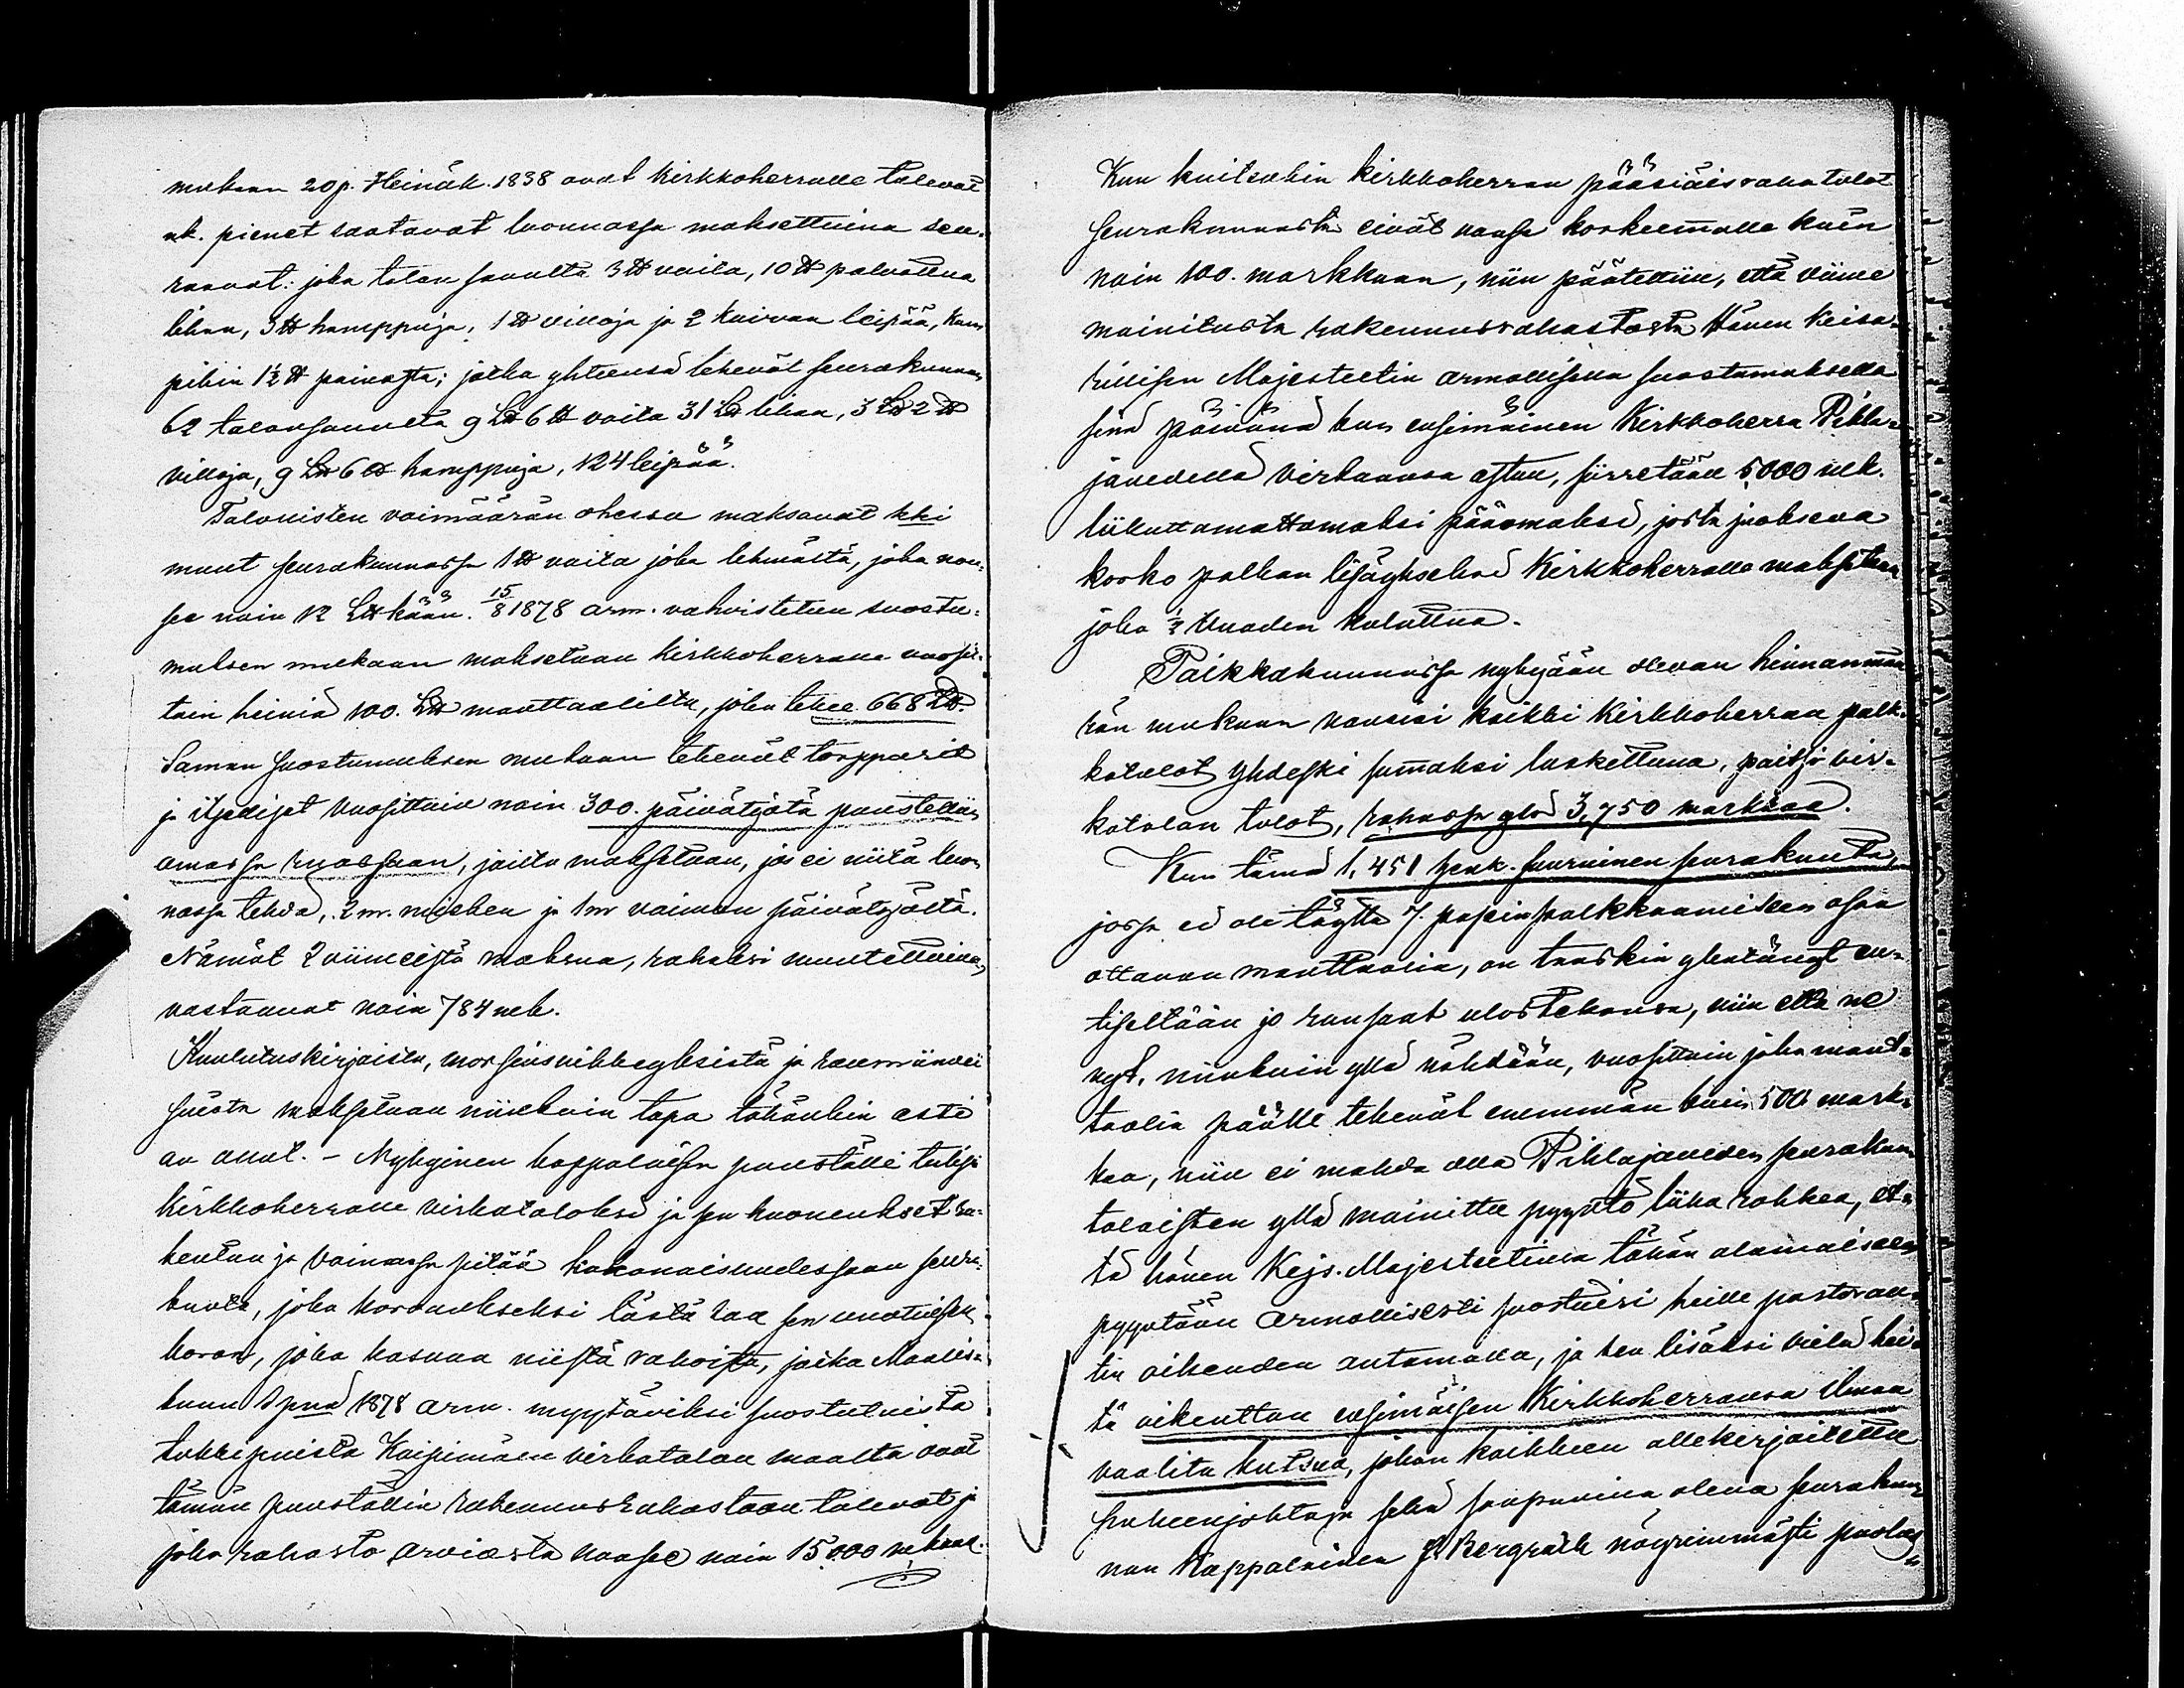 mukaan 20 p. Heinäk. 1838 ovat Kirkkoherralle tulevat
nk. pienet saatavat luonnossa maksettuina seu-
raavat: joka talon savulta 3 ℔ voita, 10 ℔ palvattua
lihaa, 3 ℔ hamppuja, 1 ℔ villoja ja 2 kuivaa leipää, kum
pikin 1½ ℔ painosta; jotka yhteensä tekevät seurakunnan
62 talonsavulta 9 L℔ 6 ℔ voita 31 L℔ lihaa, 3 L℔ 2 ℔
villoja, 9 L℔ 6 ℔ hamppuja, 124 leipää.
Talollisten voimäärän ohessa maksavat kki
muut seurakunnassa 1 ℔ voita joka lehmästä, joka nou-
see noin 12 L℔kään. 15/8 1878 arm. vahvistetun suostu-
muksen mukaan maksetaan Kirkkoherralle vuosit-
tain heiniä 100. L℔ manttaalilta, joka tekee 668 L℔.
Saman suostumuksen mukaan tekevät torpparit
ja itselliset vuosittain noin 300. päivätyötä puustellin
omassa ruassaan, joilta maksetaan, jos ei niitä luon
nossa tehdä, 2 m. miehen ja 1 m vaimon päivätyöltä.
Nämät 2 viimeistä maksua, rahaksi muutettuina,
vastaavat noin 784 mk.
Kuulutuskirjoista, morsiusvihkiyksistä ja hautauk
sista maksetaan niinkuin tapa tähänkin asti
on ollut. – Nykyinen kappalaisen puustelli tulisi
Kirkkoherralle virkataloksi ja sen huoneukset ra-
kentaa ja voimassa pitää kokonaisuudessaan seura-
kunta, joka korvaukseksi tästä saa sen vuotuisen
koron, joka kasvaa niistä rahoista, jotka Maalis-
kuun 1 pnä 1878 arm. myytäviksi suostutuista
tukkipuista Kaijinmäen virkatalon maalta ovat
tämän puustellin rakennusrahastoon tulevat ja
joka rahasto arviosta nousee noin 15,000 mkaan.
Kun kuitenkin kirkkoherran pääsiäisrahatulot
seurakunnasta eivät nouse korkeemmalle kuin
noin 100. markkaan, niin päätettiin, että viime
mainitusta rakennusrahastosta Hänen Keisa-
rillisen Majesteetin armollisella suostumuksella
sinä päivänä kun ensimäinen Kirkkoherra Pihla-
javedellä virkaansa astuu, siirretään 5,000 mk.
liikuttamattomaksi pääomaksi, josta juokseva
korko palkan lisäykseksi Kirkkoherralle maksetaan
joka ½ vuoden kuluttua.
Paikkakunnassa nykyjään olevan hinnanmää
rän mukaan nousisi kaikki Kirkkoherran palk-
katulot yhdeksi summaksi laskettuna, paitsi vir-
katalon tulot, rahassa ylös 3,750 markkaa.
Kun tämä 1,451 henk. suuruinen seurakunta,
jossa ei ole täyttä 7. papin palkkaamiseen osaa
ottavaa manttaalia, on tuskin ylentänyt en-
tiseltään jo runsaat ulostekonsa, niin että ne
nyt, niinkuin yllä nähdään, vuosittain joka mant-
taalin päälle tekevät enemmän kuin 500 mark-
kaa, niin ei mahda olla Pihlajaveden seurakun
talaisten yllä mainittu pyyntö liika rohkea, et-
tä hänen Kejs. Majesteetinsa tähän alamaiseen
pyyntöön armollisesti suostuisi heille pastoraa-
tin oikeuden antamalla, ja sen lisäksi vielä hei-
tä oikeuttaa ensimäisen Kirkkoherransa ilman
vaalita kutsua, johon kaikkeen allekirjoitettu
puheenjohtaja sekä saapuvina oleva seurakun-
nan Kappalainen J. Bergroth nöyrimmästi puolus-